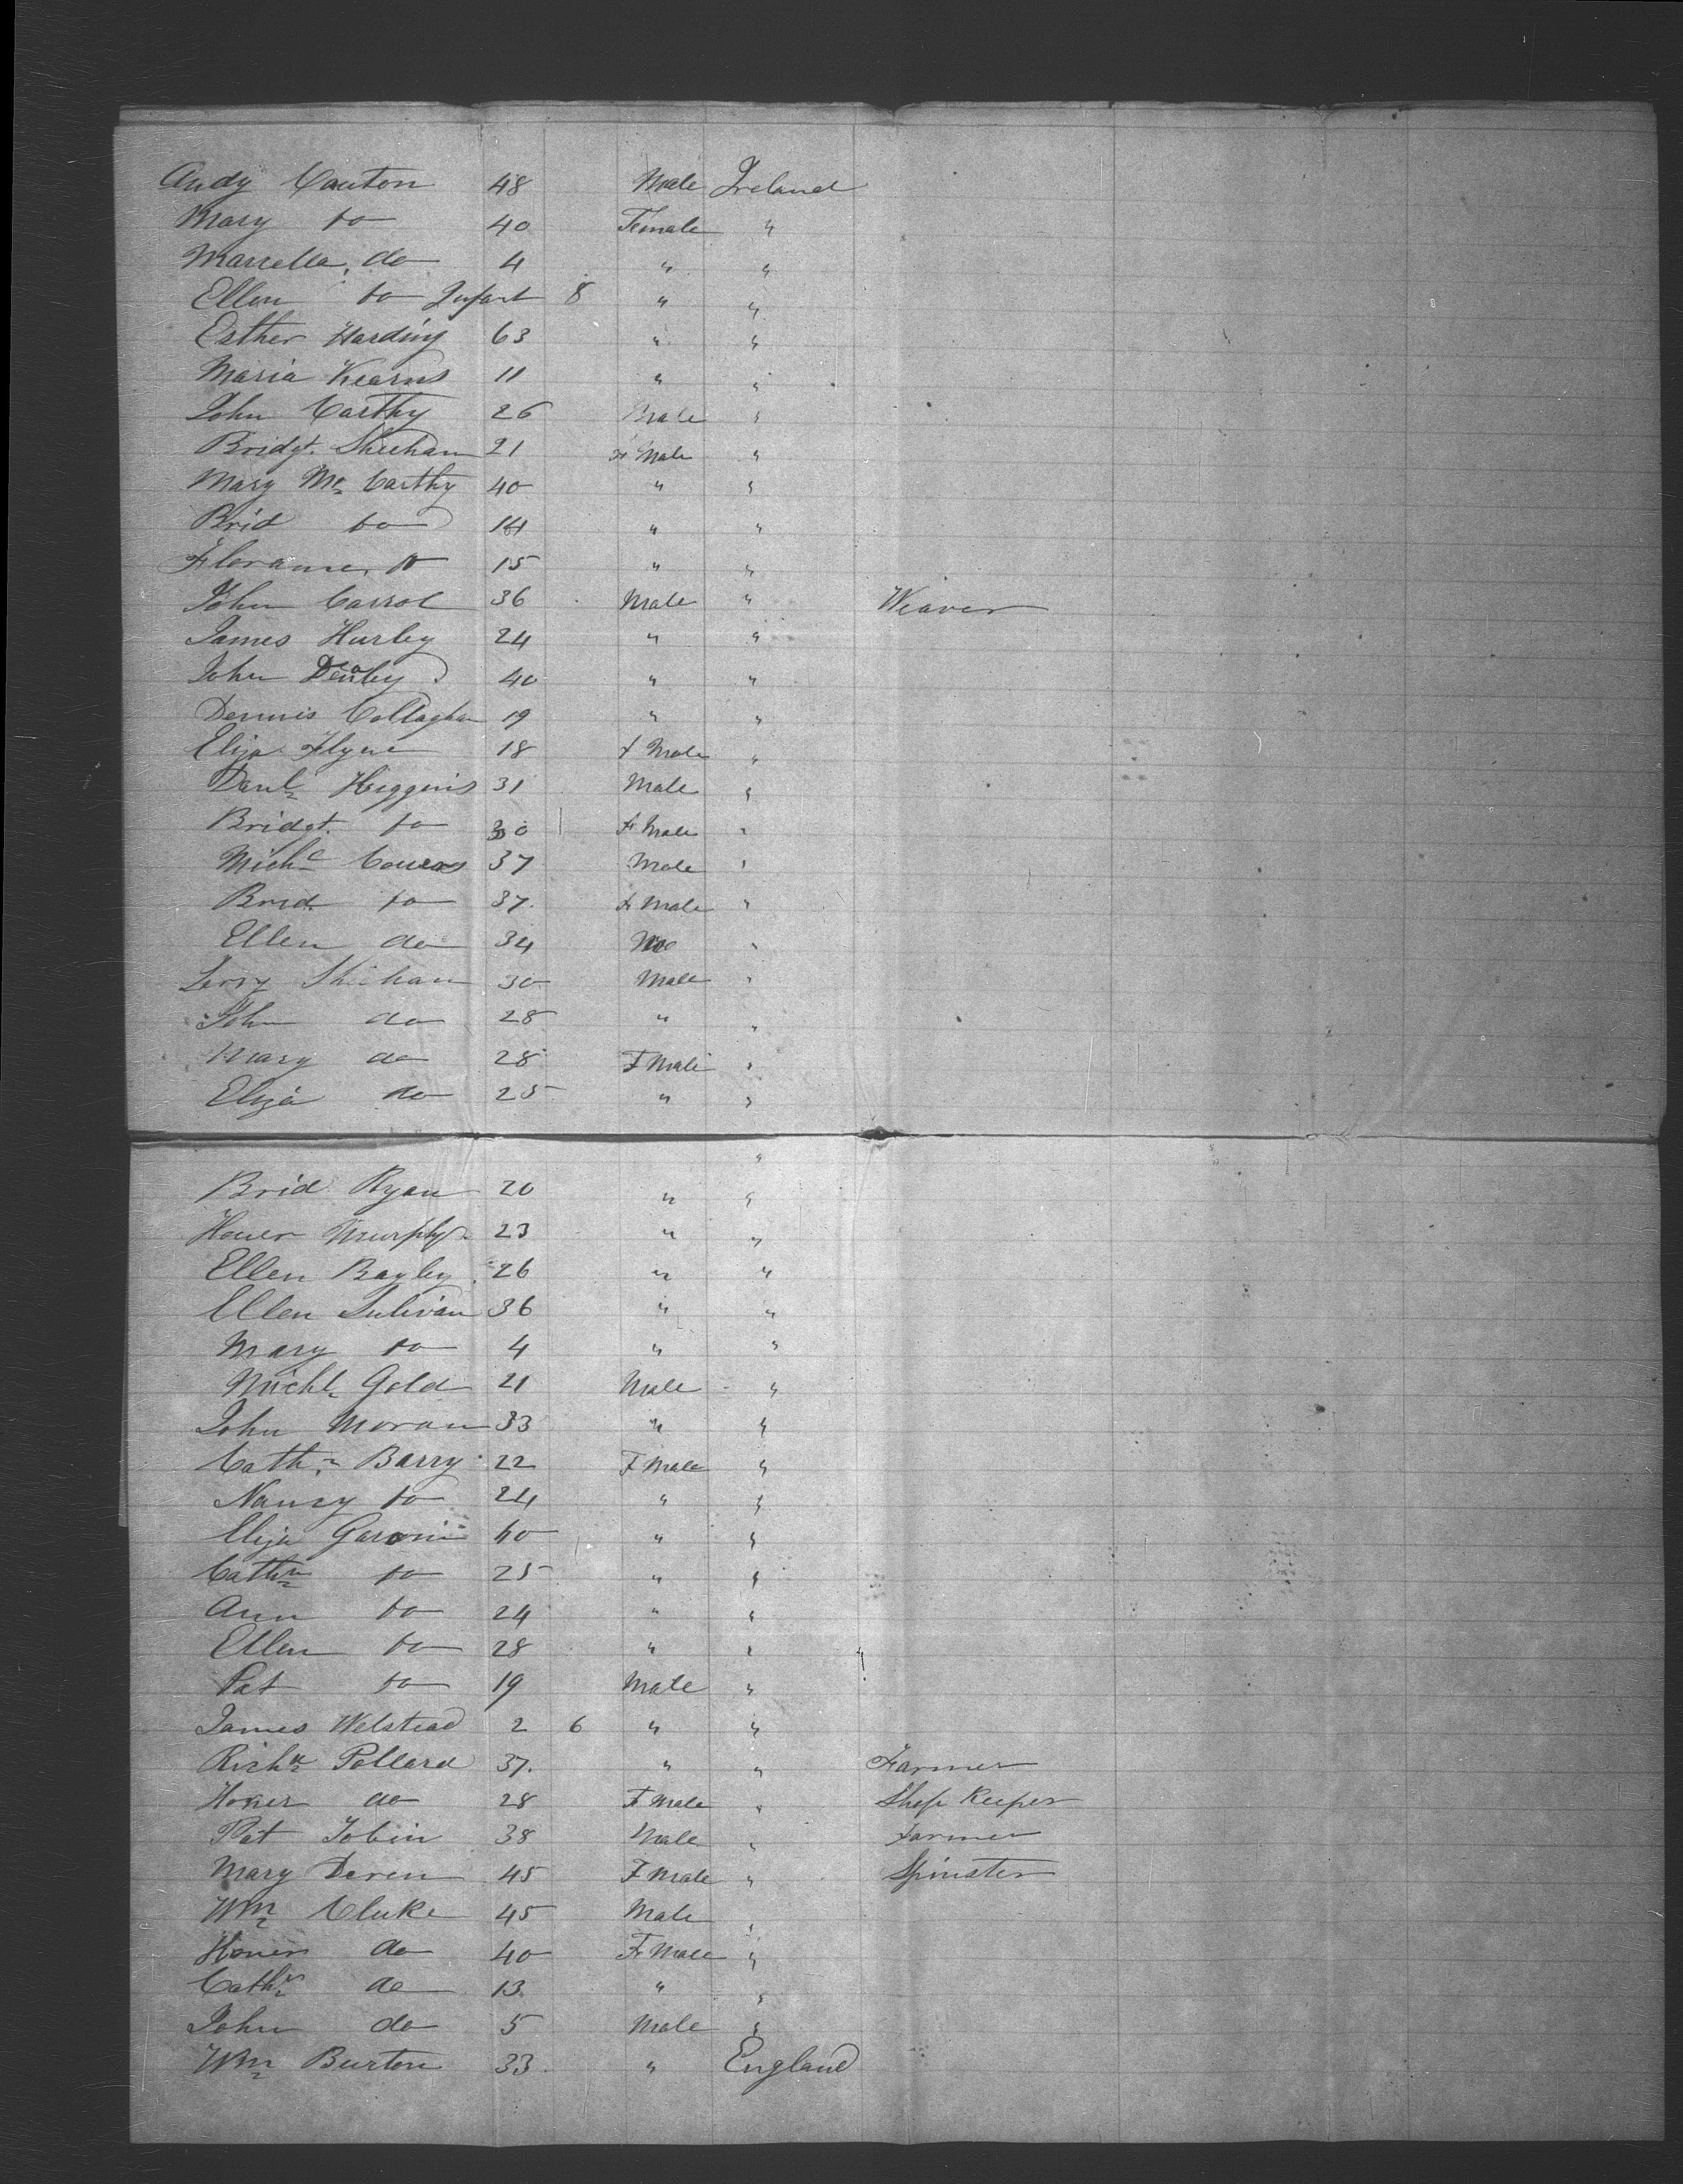 Andy Canton 48 Male Ireland
Mary do 40 Female "
Marcella do 4 " "
Ellen do Infant 8 " "
Esther Harding 63 " "
Maria Kearns 11 " "
John Carthy 26 Male "
Bridgt. Sheehan 21 F Male "
Mary Mc Carthy 40 " "
Brid do 14 " "
Florance do 15 " "
John Carrol 36 Male " Weaver
James Hurley 24 " "
John 40 " "
Dennis Collaghan 19 " "
Eliza Flynn 18 F Male "
Danl Higgins 31 Male "
Bridgt. do 30 F Male "
Michl 37 Male "
Brid do 37 F Male "
Ellen do 34 "
Jerry Shihan 30 Male "
John do 28 " "
Mary do 28 F Male "
Eliza do 25 " "
"
Brid Ryan 20 " "
Honer Murphy 23 " "
Ellen Bagley 26 " "
Ellen Sulivan 36 " "
Mary do 4 " "
Michl Gold 21 Male "
John Moran 33 " "
Cathn Barry 22 F Male "
Nancy do 24 " "
Eliza Garvin 60 " "
Cathn do 25 " "
Ann do 24 " "
Ellen do 28 " "
Pat do 19 Male "
James Welstead 2 6 " "
Richd Pollard 37 " " Farmer
Honer do 28 F Male " Shop Keeper
Pat Tobin 38 Male " Farmer
Mary Deren 45 F Male " Spinster
Wm Cluke 45 Male "
Honer do 40 F Male "
Cathn do 13 " "
John do 5 Male "
Wm Burton 33 " England